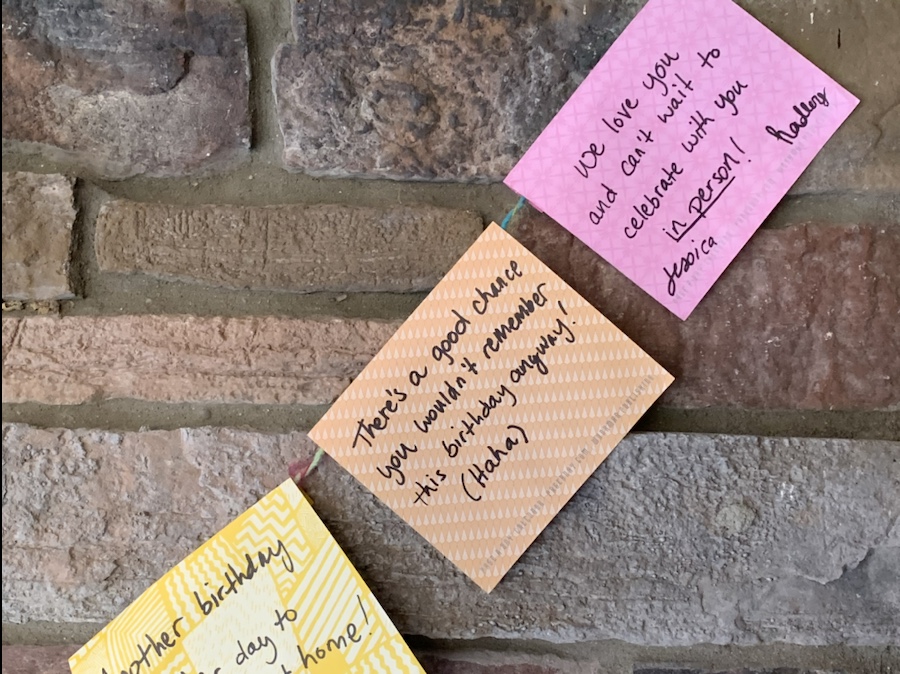 We love you
and can't wait to
celebrate with you
in person!
Jessica
hadley
There's a good chance
you wouldn't remember
this birthday anyway!
(Haha)
Another birthday
day to
home!